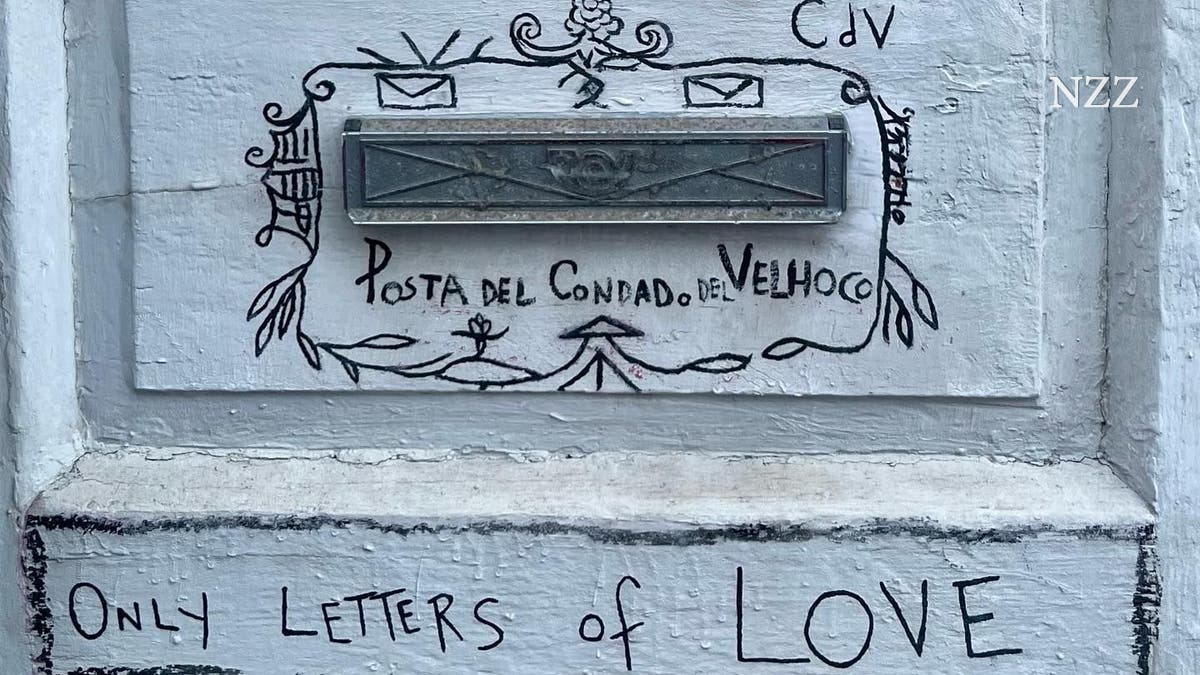 CdV
NZZ
POSTA DEL CONDADO DEL VELHOCO
ONLY LETTERS of LOVE